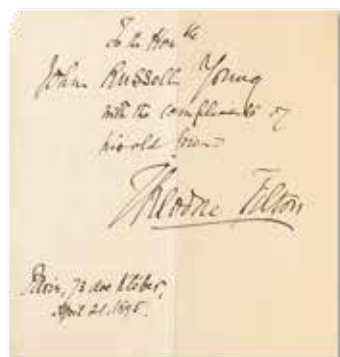 To the Hon^ble
John Russell Young
with the compliments of
his old friend
Theodore Tilton
Paris, 73 ave Kléber,
April 21. 1895.